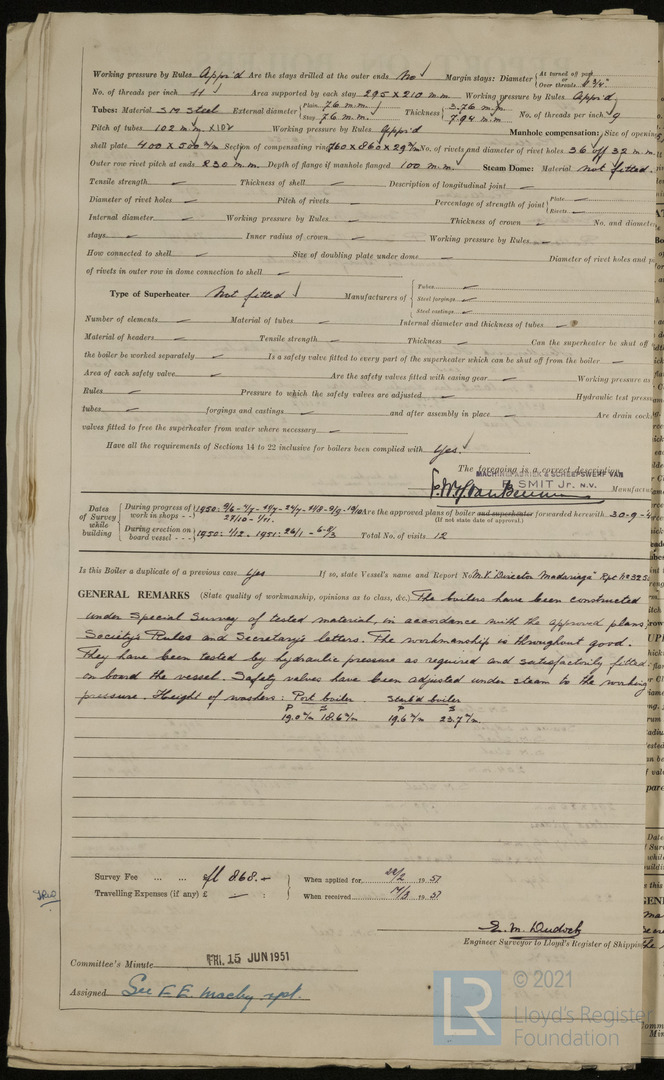 Working pressure by Rules Appr'd Are the stays drilled at the outer ends No Margin stays: Diameter { At turned off part or Over threads 1 3/4"
No. of threads per inch 11 Area supported by each stay 295 x 210 m.m. Working pressure by Rules Appr'd
Tubes: Material S M Steel External diameter { Plain 76 m.m. Stay 76 m.m. Thickness { 3.76 m.m. 7.94 m.m. No. of threads per inch 9
Pitch of tubes 102 m.m. x 102 Working pressure by Rules Appr'd Manhole compensation: Size of opening
shell plate 400 x 500 m/m Section of compensating ring 760 x 860 x 29 m/m No. of rivets and diameter of rivet holes 36 off 32 m.m.
Outer row rivet pitch at ends 230 m.m. Depth of flange if manhole flanged 100 m.m. Steam Dome: Material Not fitted.
Tensile strength — Thickness of shell — Description of longitudinal joint —
Diameter of rivet holes — Pitch of rivets — Percentage of strength of joint { Plate — Rivets —
Internal diameter — Working pressure by Rules — Thickness of crown — No. and diameter
stays — Inner radius of crown — Working pressure by Rules —
How connected to shell — Size of doubling plate under dome — Diameter of rivet holes and p
of rivets in outer row in dome connection to shell —
Type of Superheater Not fitted Manufacturers of { Tubes — Steel forgings — Steel castings —
Number of elements — Material of tubes — Internal diameter and thickness of tubes —
Material of headers — Tensile strength — Thickness — Can the superheater be shut off
the boiler be worked separately — Is a safety valve fitted to every part of the superheater which can be shut off from the boiler —
Area of each safety valve — Are the safety valves fitted with easing gear — Working pressure as
Rules — Pressure to which the safety valves are adjusted — Hydraulic test press
tubes — forgings and castings — and after assembly in place — Are drain cock
valves fitted to free the superheater from water where necessary —
Have all the requirements of Sections 14 to 22 inclusive for boilers been complied with Yes.
The foregoing is a correct description
MACHINEFABRIEK & SCHEEPSWERF VAN
P. SMIT Jr. N.V. Manufactur
Dates of Survey while building { During progress of work in shops - - 1950: Are the approved plans of boiler and superheater forwarded herewith 30-9-4
27/10 - 1/11. (If not state date of approval.)
During erection on board vessel - - - 1950: 1/12. 1951: 26/1 - Total No. of visits 12
Is this Boiler a duplicate of a previous case Yes If so, state Vessel's name and Report No. M.V. "Director Madariaga" Rpt No 325
GENERAL REMARKS (State quality of workmanship, opinions as to class, &c.) The boilers have been constructed
under Special Survey of tested material in accordance with the approved plans,
Society's Rules and Secretary's letters. The workmanship is throughout good.
They have been tested by hydraulic pressure as required and satisfactorily fitted
on board the vessel. Safety valves have been adjusted under steam to the working
pressure. Height of washers: Port boiler Starb'd boiler
P S P S
19.0 m/m 18.6 m/m 19.6 m/m 23.7 m/m.
Survey Fee ... ... fl 868.- When applied for 19 51
Travelling Expenses (if any) £ — When received 19 51
Engineer Surveyor to Lloyd's Register of Shipping
Committee's Minute FRI. 15 JUN 1951
Assigned See F.E. machy rpt.
© 2021
Lloyd's Register
Foundation
LR